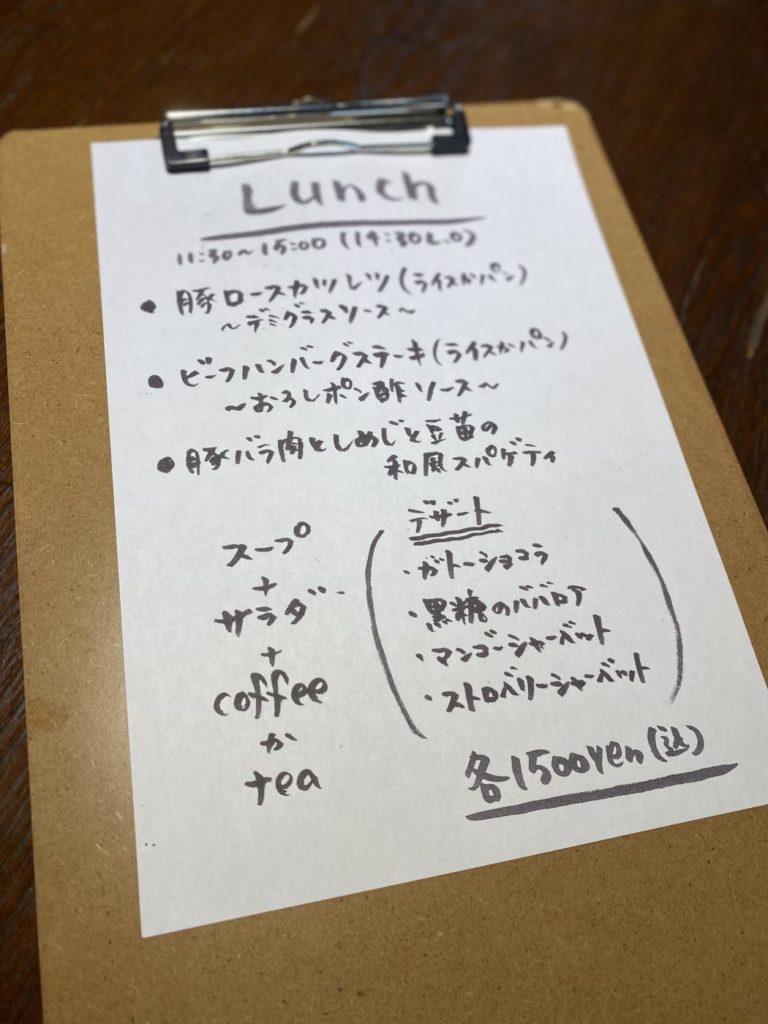 Lunch
11:30〜15:00 (14:30L.O)
● 豚ロースカツレツ(ライスかパン)
〜デミグラスソース〜
● ビーフハンバーグステーキ(ライスかパン)
〜おろしポン酢ソース〜
● 豚バラ肉としめじと豆苗の
和風スパゲティ
スープ
+
サラダ
+
coffee
か
tea
デザート
・ガトーショコラ
・黒糖のババロア
・マンゴーシャーベット
・ストロベリーシャーベット
各1500yen(込)